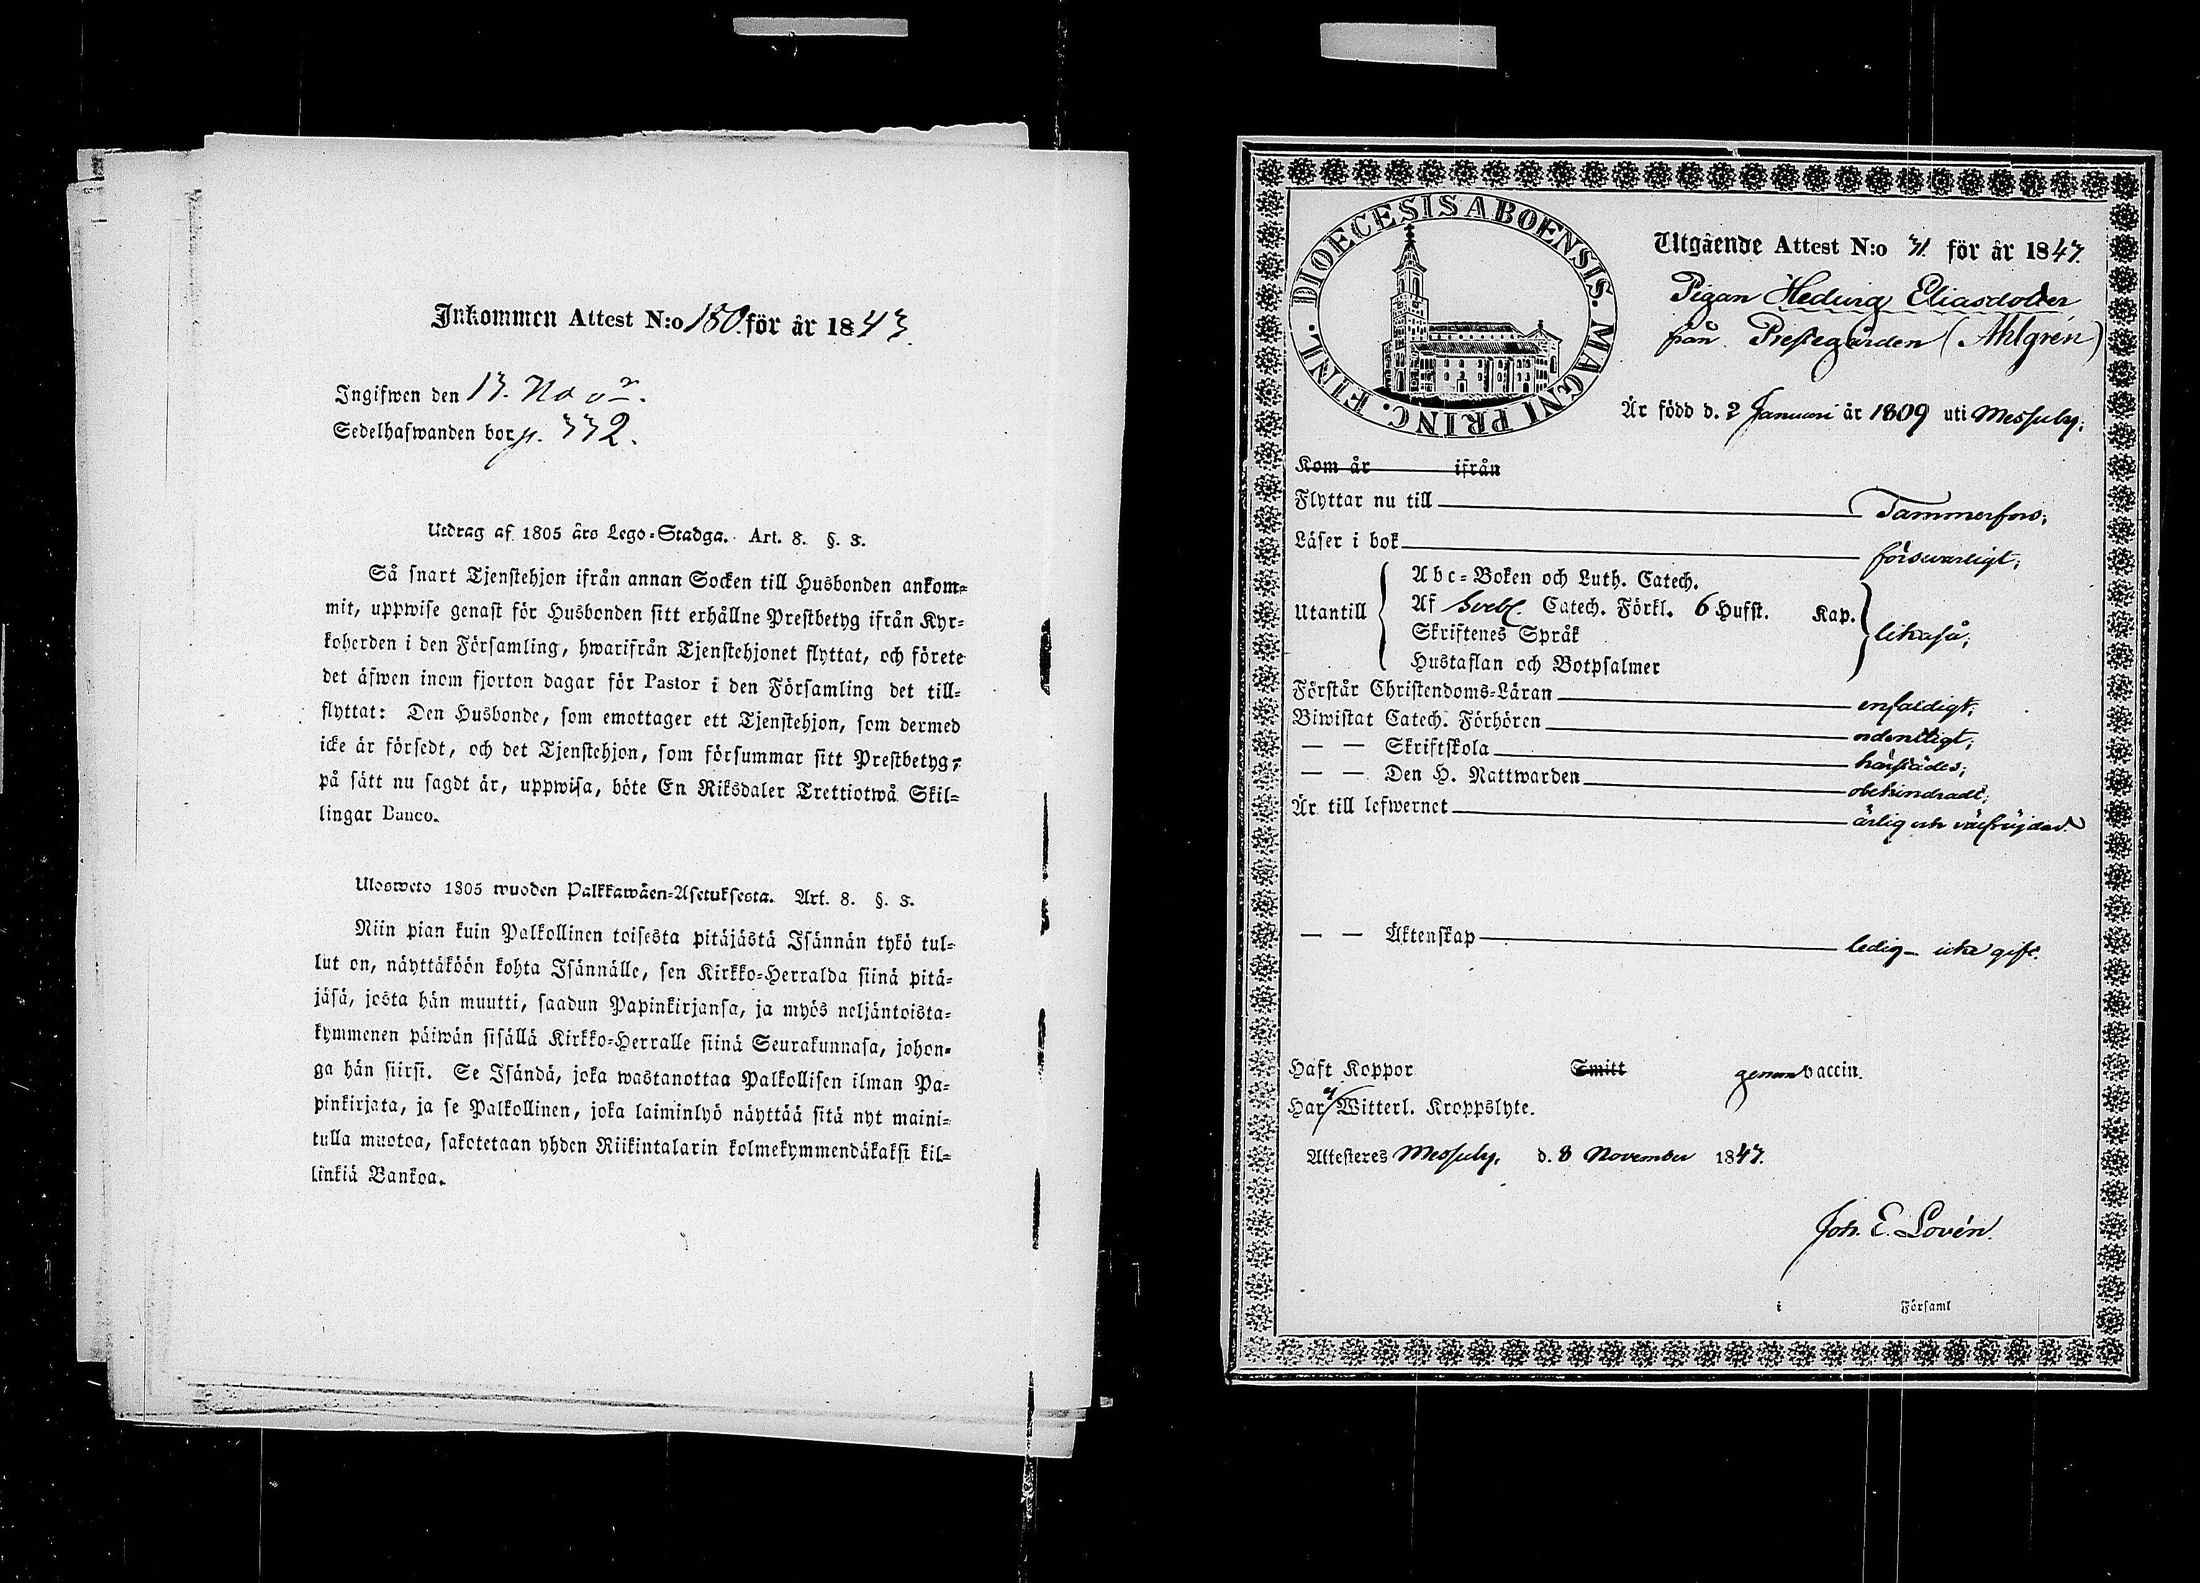 Inkommen Attest N:o 180. för år 1843.
Ingifwen den 13. Novr.
Sedelhafwanden bor p. 332.
Utdrag af 1805 års Lego-Stadga. Art. 8. §. 8.
Så snart Tjenstehjon ifrån annan Socken till Husbonden ankom-
mit, uppwise genast för Husbonden sitt erhållne Prestbetyg ifrån Kyr-
koherden i den Församling, hwarifrån Tjenstehjonet flyttat, och förete
det äfwen inom fjorton dagar för Pastor i den Församling det till-
flyttat: Den Husbonde, som emottager ett Tjenstehjon, som dermed
icke är försedt, och det Tjenstehjon, som försummar sitt Prestbetyg,
på sätt nu sagdt är, uppwisa, böte En Riksdaler Trettiotwå Skil-
lingar Banco.
Ulosweto 1805 wuoden Palkkawäen-Asetuksesta. Art. 8. §. 8.
Niin pian kuin Palkollinen toisesta pitäjästä Isännän tykö tul-
lut on, näyttäköön kohta Isännälle, sen Kirkko-Herralda siinä pitä-
jäsä, josta hän muutti, saadun Papinkirjansa, ja myös neljäntoista-
kymmenen päiwän sisällä Kirkko-Herralle siinä Seurakunnasa, johon-
ga hän siirsi. Se Isändä, joka wastanottaa Palkollisen ilman Pa-
pinkirjata, ja se Palkollinen, joka laiminlyö näyttää sitä nyt maini-
tulla muotoa, sakotetaan yhden Riikintalarin kolmekymmendäkaksi kil-
linkiä Bankoa.
DIOECESIS ABOENSIS. MAGNI PRINC. FINL.
Utgående Attest N:o 31. för år 1843.
Pigan Hedwig Eliasdotter
från Prestegården (Ahlgrén)
Är född d. 2 Januari år 1809 uti Messuby;
Kom år ifrån
Flyttar nu till Tammerfors;
Läser i bok försvarligt;
Utantill Abc-Boken och Luth. Catech.
Af Svebel. Catech. Förkl. 6 Hufst. Kap. likaså;
Skriftenes Språk
Hustaflan och Botpsalmer
Förstår Christendoms-Läran enfaldigt;
Biwistat Catech. Förhören ordentligt;
— — Skriftskola härstädes;
— — Den H. Nattwarden obehindradt;
Är till lefwernet ärlig och välfrejdad.
— — Äktenskap ledig - icke gift.
Haft Koppor Smitt genom vaccin.
Har ej Witterl. Kroppslyte.
Attesteres Messuby, d. 8 November 1843.
Joh. E. Lovén.
i Församl